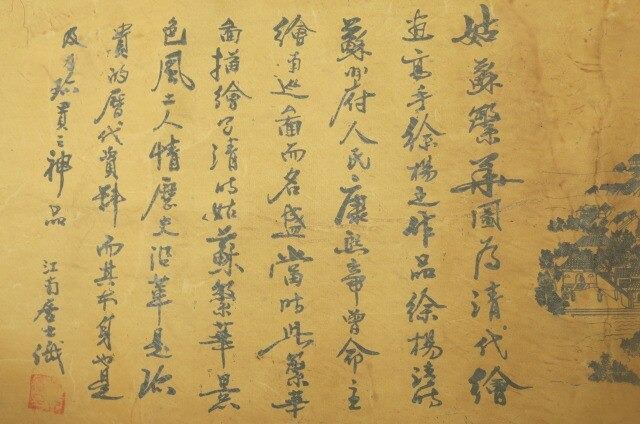 姑蘇繁華圖为清代繪
畫高手徐揚之作品徐揚清時
蘇州府人民康熙帝曾命主
繪南巡圖而名盛當时此繁華
圖描繪了清时姑蘇繁華景
色風土人情歷史沿革是珍
貴的歷代資料而其本身也是
及其珍貴之神品
江南